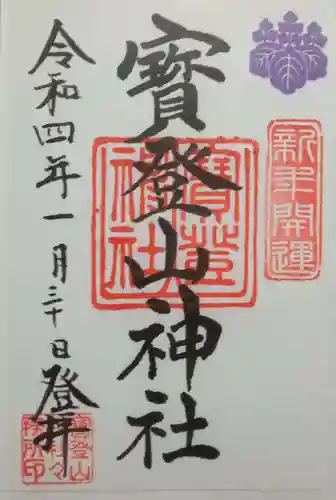 新年開運
寶登山神社
寶登山神社
令和四年一月三十日登拝
寶登山
務所印